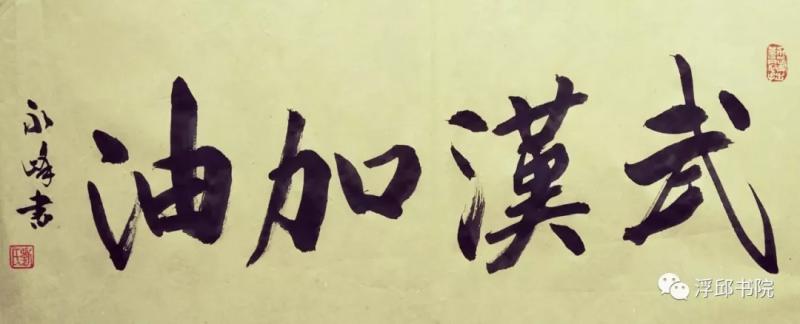 武漢加油
永峰書
浮邱书院